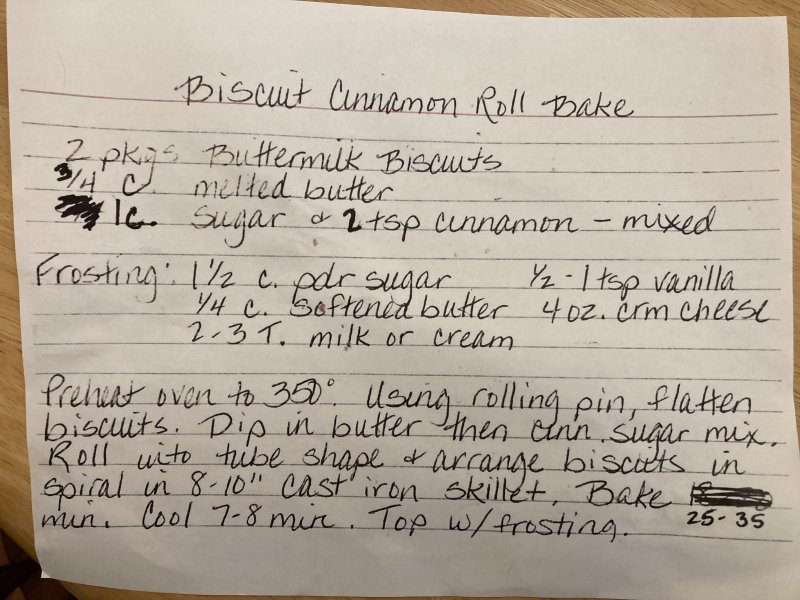 Biscuit Cinnamon Roll Bake
2 pkgs Buttermilk Biscuits
3/4 c. melted butter
1c. sugar & 2 tsp cinnamon - mixed
Frosting: 1 1/2 c. pdr sugar 1/2 - 1 tsp vanilla
1/4 c. softened butter 4 oz. crm cheese
2-3 T. milk or cream
Preheat oven to 350°. Using rolling pin, flatten
biscuits. Dip in butter then cinn. sugar mix.
Roll into tube shape & arrange biscuits in
spiral in 8-10" cast iron skillet. Bake 25-35
min. Cool 7-8 min. Top w/ frosting.